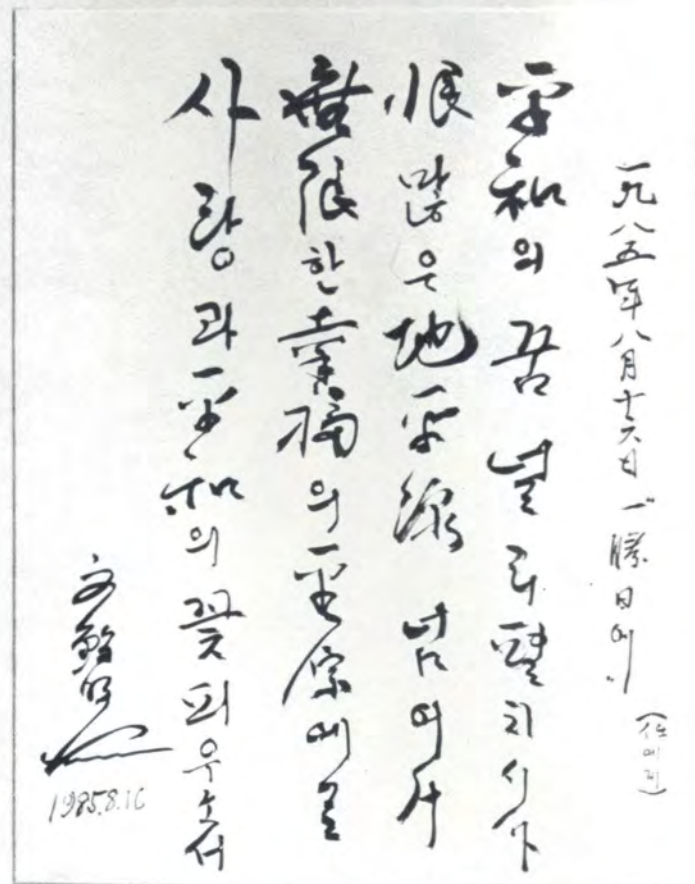 一九八五年八月十六日 "一勝日에"
平和의 꿈 널리 펼치시사
恨많은 地平線 넘어서
無限한 幸福의 平原에로
사랑과 平和의 꽃 피우소서
文鮮明
1985.8.16